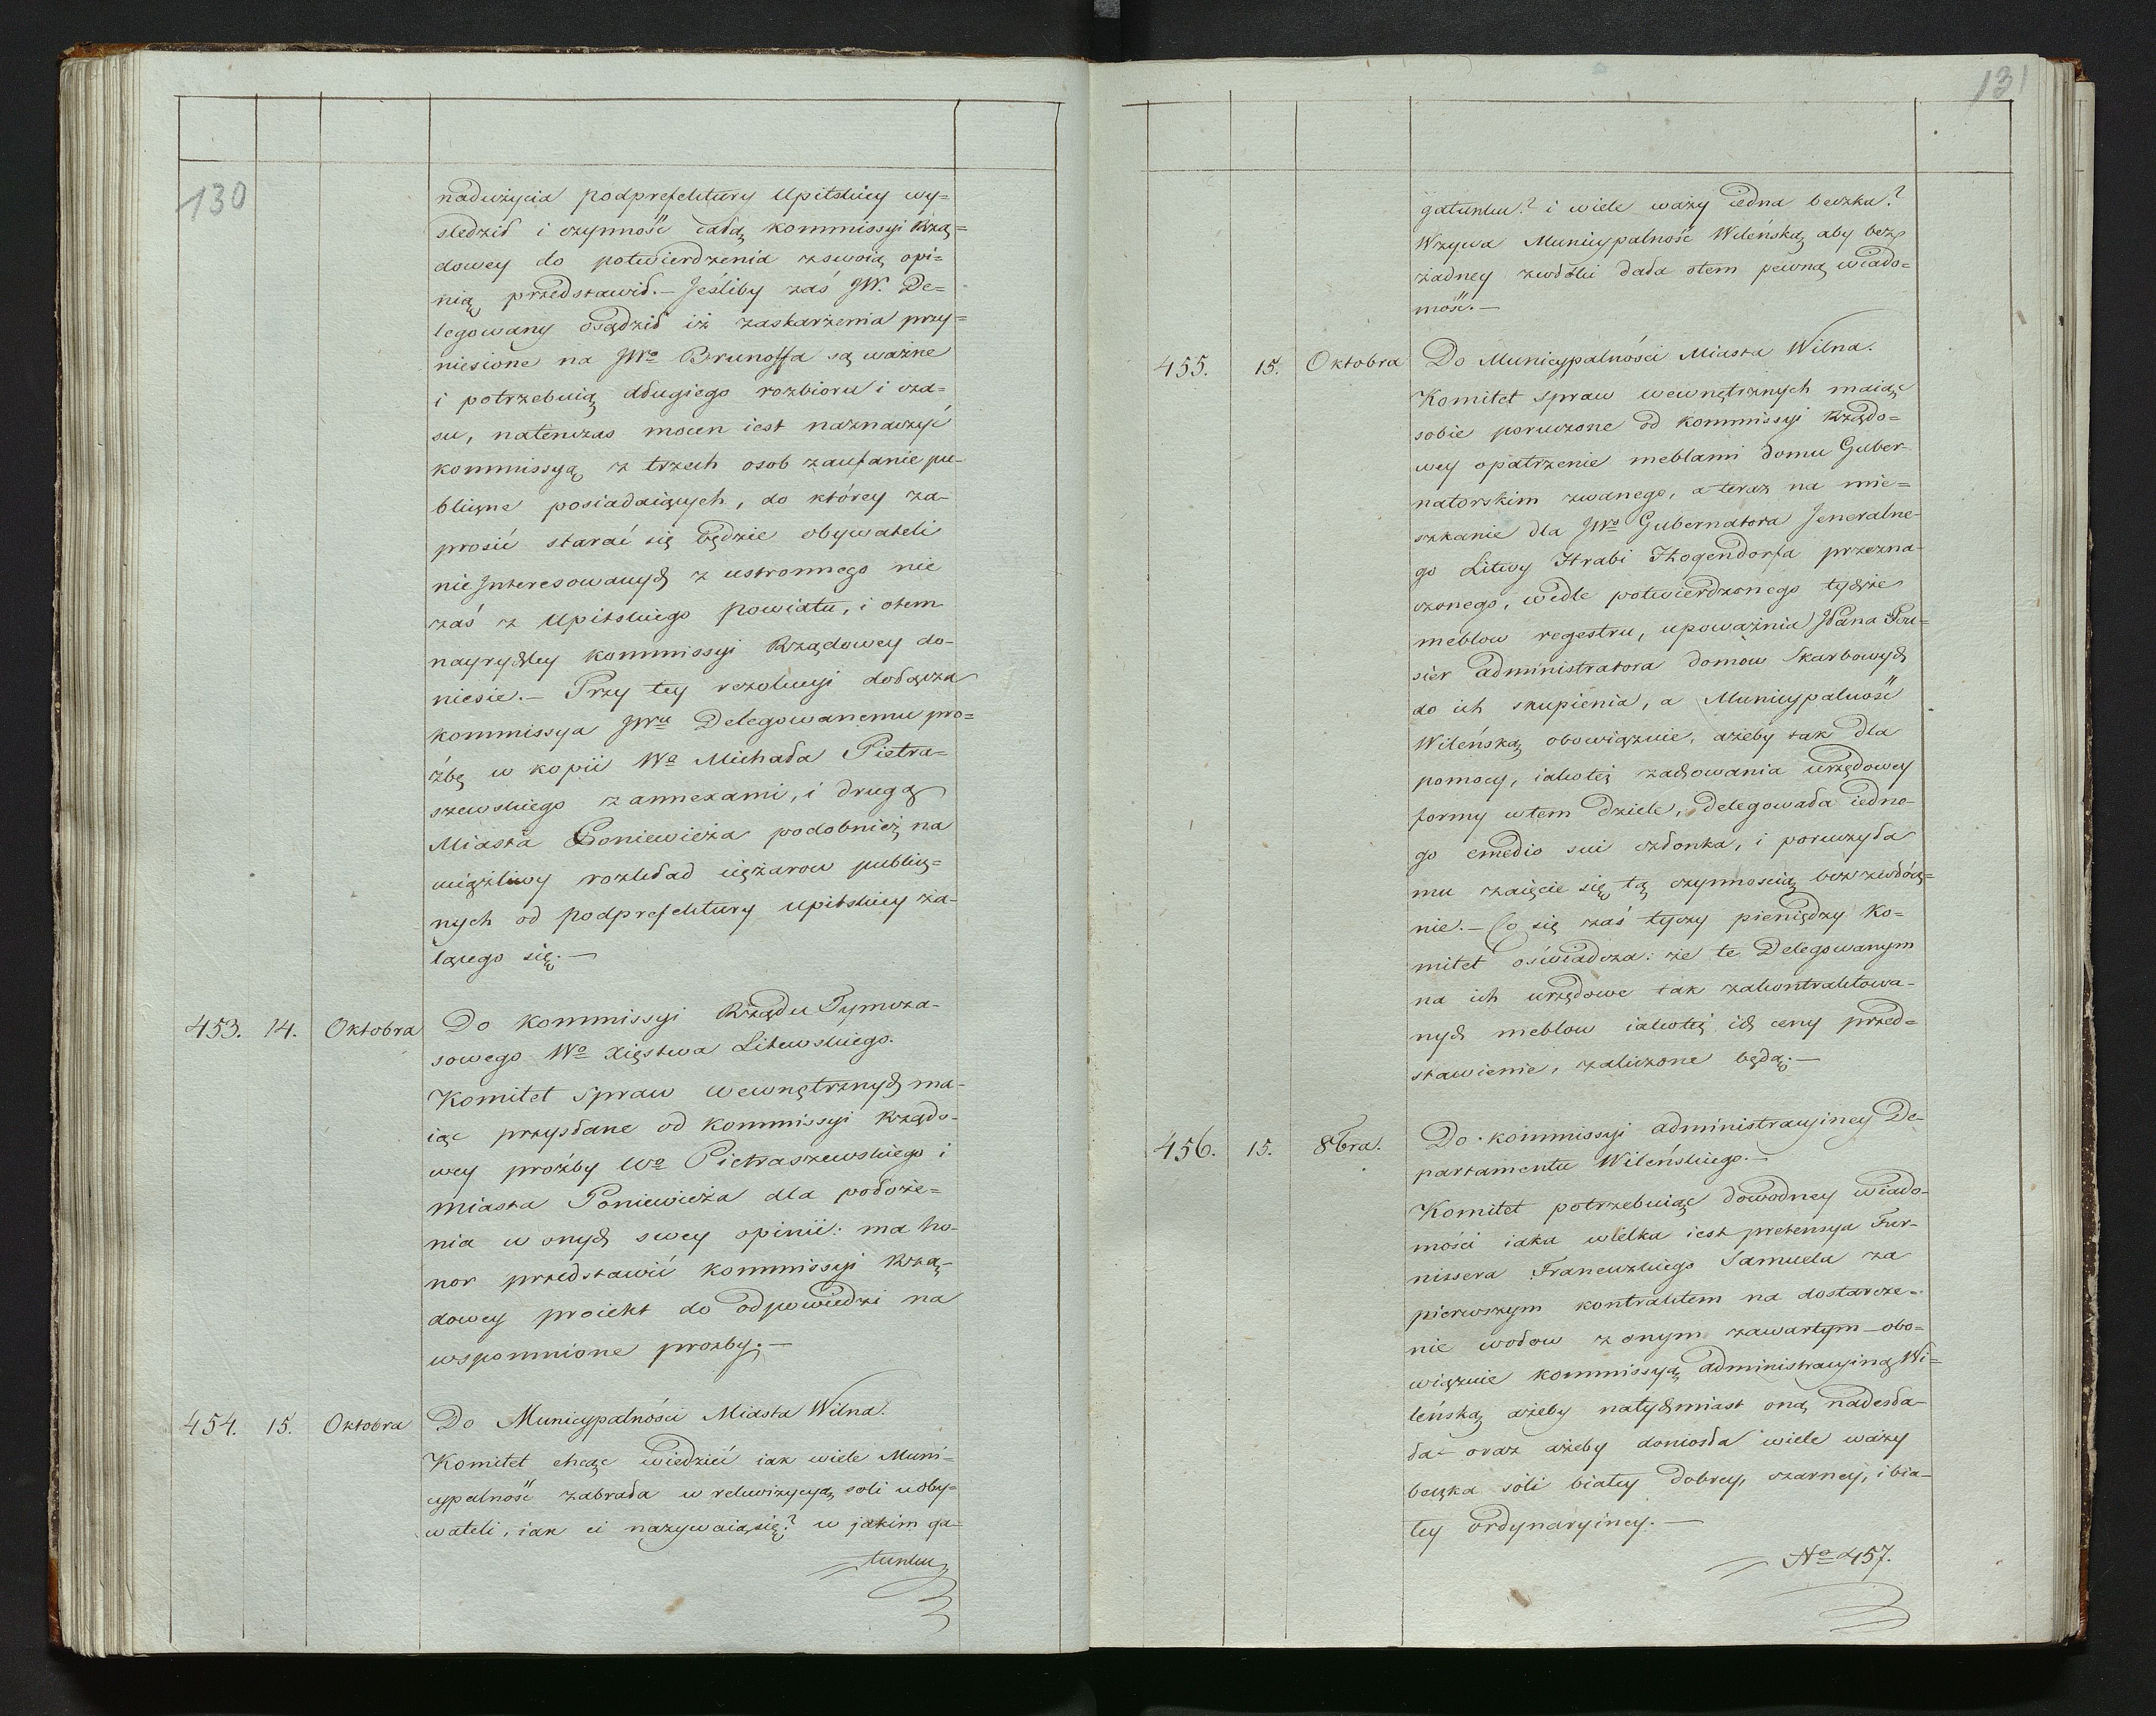 130
nadużycia podprefektury Upitskiey wy=
sledził i czynność całą kommissyi Rzą=
dowey do potwierdzenia z swoią opi=
nią przedstawił. – Jeśliby zaś JW. De=
legowany osądził iż zaskarżenia przy=
niesione na JWo Brunoffa są ważne
i potrzebuią długiego rozbioru i cza=
su, natenczas mocen iest naznaczyć
kommissyą z trzech osob zaufanie pu-
bliczne posiadaiących, do którey za-
prosić starać się będzie obywateli
nie Interesowanych z ustronnego nie
zaś z Upitskiego powiatu, i otem
nayrychley kommissyi Rządowey do-
niesie. – Przy tey rezolucyi dołącza
kommissya JWu Delegowanemu pro=
źbę w kopii Wo Michała Pietra=
szewskiego z annexami, i drugą
Miasta Poniewieża podobnież na
uciążliwy rozkład ciężarow public=
nych od podprefektury Upitskiey ża-
lącego się. –
453. 14. Oktobra Do kommissyi Rządu Tymcza-
sowego Wo Xięstwa Litewskiego.
Komitet Spraw Wewnętrznych ma-
iąc przysłane od kommissyi Rządo-
wey prożby Wo Pietraszewskiego i
miasta Poniewieża dla położe=
nia w onych swey opinii: ma ho-
nor przedstawić kommissyi Rzą-
dowey proiekt do odpowiedzi na
wspomnione prozby. –
454. 15. Oktobra Do Municypalności Miasta Wilna.
Komitet chcąc wiedzieć iak wiele Muni=
cypalność zabrała w rekwizycyą soli u oby=
wateli, iak ci nazywaią się? w jakim ga-
tunku
131
gatunku? i wiele waży iedna beczka?
Wzywa Municypalność Wileńską aby bez
żadney zwłoki dała otem pewną wiado=
mość. –
455. 15. Oktobra Do Municypalności Miasta Wilna.
Komitet spraw wewnętrznych maiąc
sobie poruczone od kommissyi Rządo=
wey opatrzenie meblami domu Guber-
natorskim zwanego, a teraz na mie=
szkanie dla JWo Gubernatora Jeneralne-
go Litwy Hrabi Hogendorfa przezna-
czonego, wedle potwierdzonego tychże
meblow regestru, upoważnia JPana Fou=
sier administratora domow Skarbowych
do ich skupienia, a Municypalność
Wileńską obowiązuie, ażeby tak dla
pomocy, iakoteż zachowania urzędowey
formy wtem dziele, delegowała iedno-
go emedio sui członka, i poruczyła
mu zaięcie się tą czynnoscią bezzwłocz=
nie. – Co się zaś tyczy pieniędzy Ko=
mitet oświadcza: że te Delegowanym
na ich urzędowe tak zakontraktowa-
nych meblow iakoteż ich ceny przed=
stawienie, zaliczone będą. –
456. 15. 8bra. Do kommissyi administracyiney De-
partamentu Wileńskiego. –
Komitet potrzebuiąc dowodney wiado-
mości iaka wielka iest pretensya Fur-
nissera Francuzkiego Samuela za
pierwszym kontraktem na dostarcze-
nie wołow z onym zawartym – obo=
wiązuie kommissyą administracyiną Wi=
leńską ażeby natychmiast oną nadesła-
ła – oraz ażeby doniosła wiele waży
beczka soli białey dobrey, szarney, i bia-
łey ordynaryiney. –
No 457.